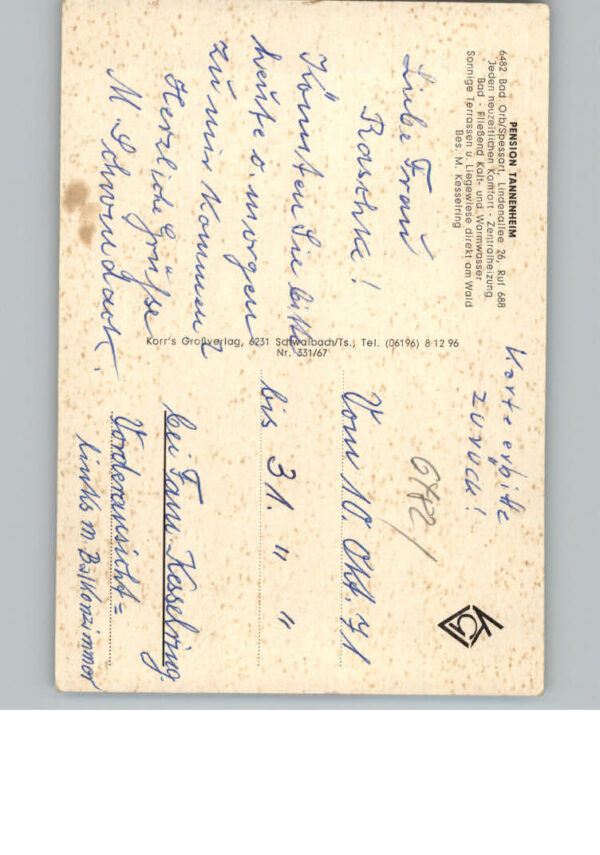 PENSION TANNENHEIM
6482 Bad Orb/Spessart, Lindenallee 26, Ruf 688
Jeden neuzeitlichen Komfort - Zentralheizung
Bad - Fließend Kalt- und Warmwasser
Sonnige Terrassen u. Liegewiese direkt am Wald
Bes. M. Kesselring
Liebe Frau
Raschke!
Könnten Sie bitte
heute o. morgen
zu mir kommen?
Herzliche Grüße
M. Schwendack.
Korr's Großverlag, 6231 Schwalbach/Ts., Tel. (06196) 8 12 96
Nr. 331/67
Karte erbitte
zurück!
6482/
Vom 10. Okt. 71
bis 31. " "
bei Fam. Kesselring.
Vorderansicht =
links m. Balkonzimmer